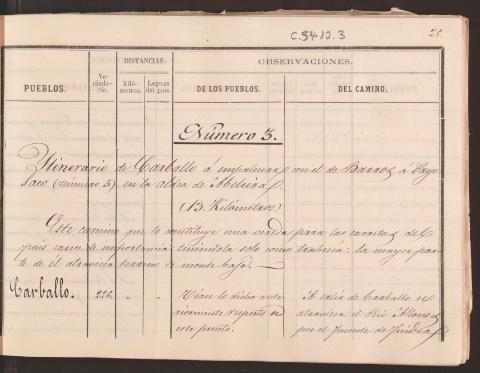 C.54-10.3
28.
DISTANCIAS.
OBSERVACIONES.
PUEBLOS.
Ve-
cinda-
rio.
Kiló-
metros.
Leguas
del país.
DE LOS PUEBLOS.
DEL CAMINO.
Número 3.
Itinerario de Carballo á empalmar con el de Barros á
(número 5) en la aldea de
(13 Kilómetros)
Este camino que lo constituye una vereda para las carretas del
país carece de importancia teniéndola solo como trabesía: la mayor par-
te de él atraviesa terreno de monte bajo.
Carballo.
226.
"
"
Véase lo dicho ante-
riormente respecto de
este punto.
Al salir de Carballo se
atraviesa el Rio
por el Puente de